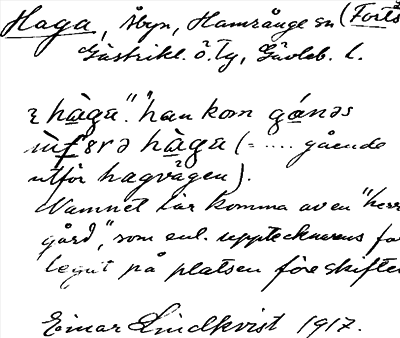 Haga, Åbyn, Hamrånge sn (Forts
Gästrikl. ö. Tg, Gävleb. l.
hàga." "han kom gánəs
hàga (= .... gående
utför hagvägen).
Namnet lär komma av en "herr
gård", som enl. upptecknarens
legat på platsen före skiftes
Einar Lindkvist 1917.